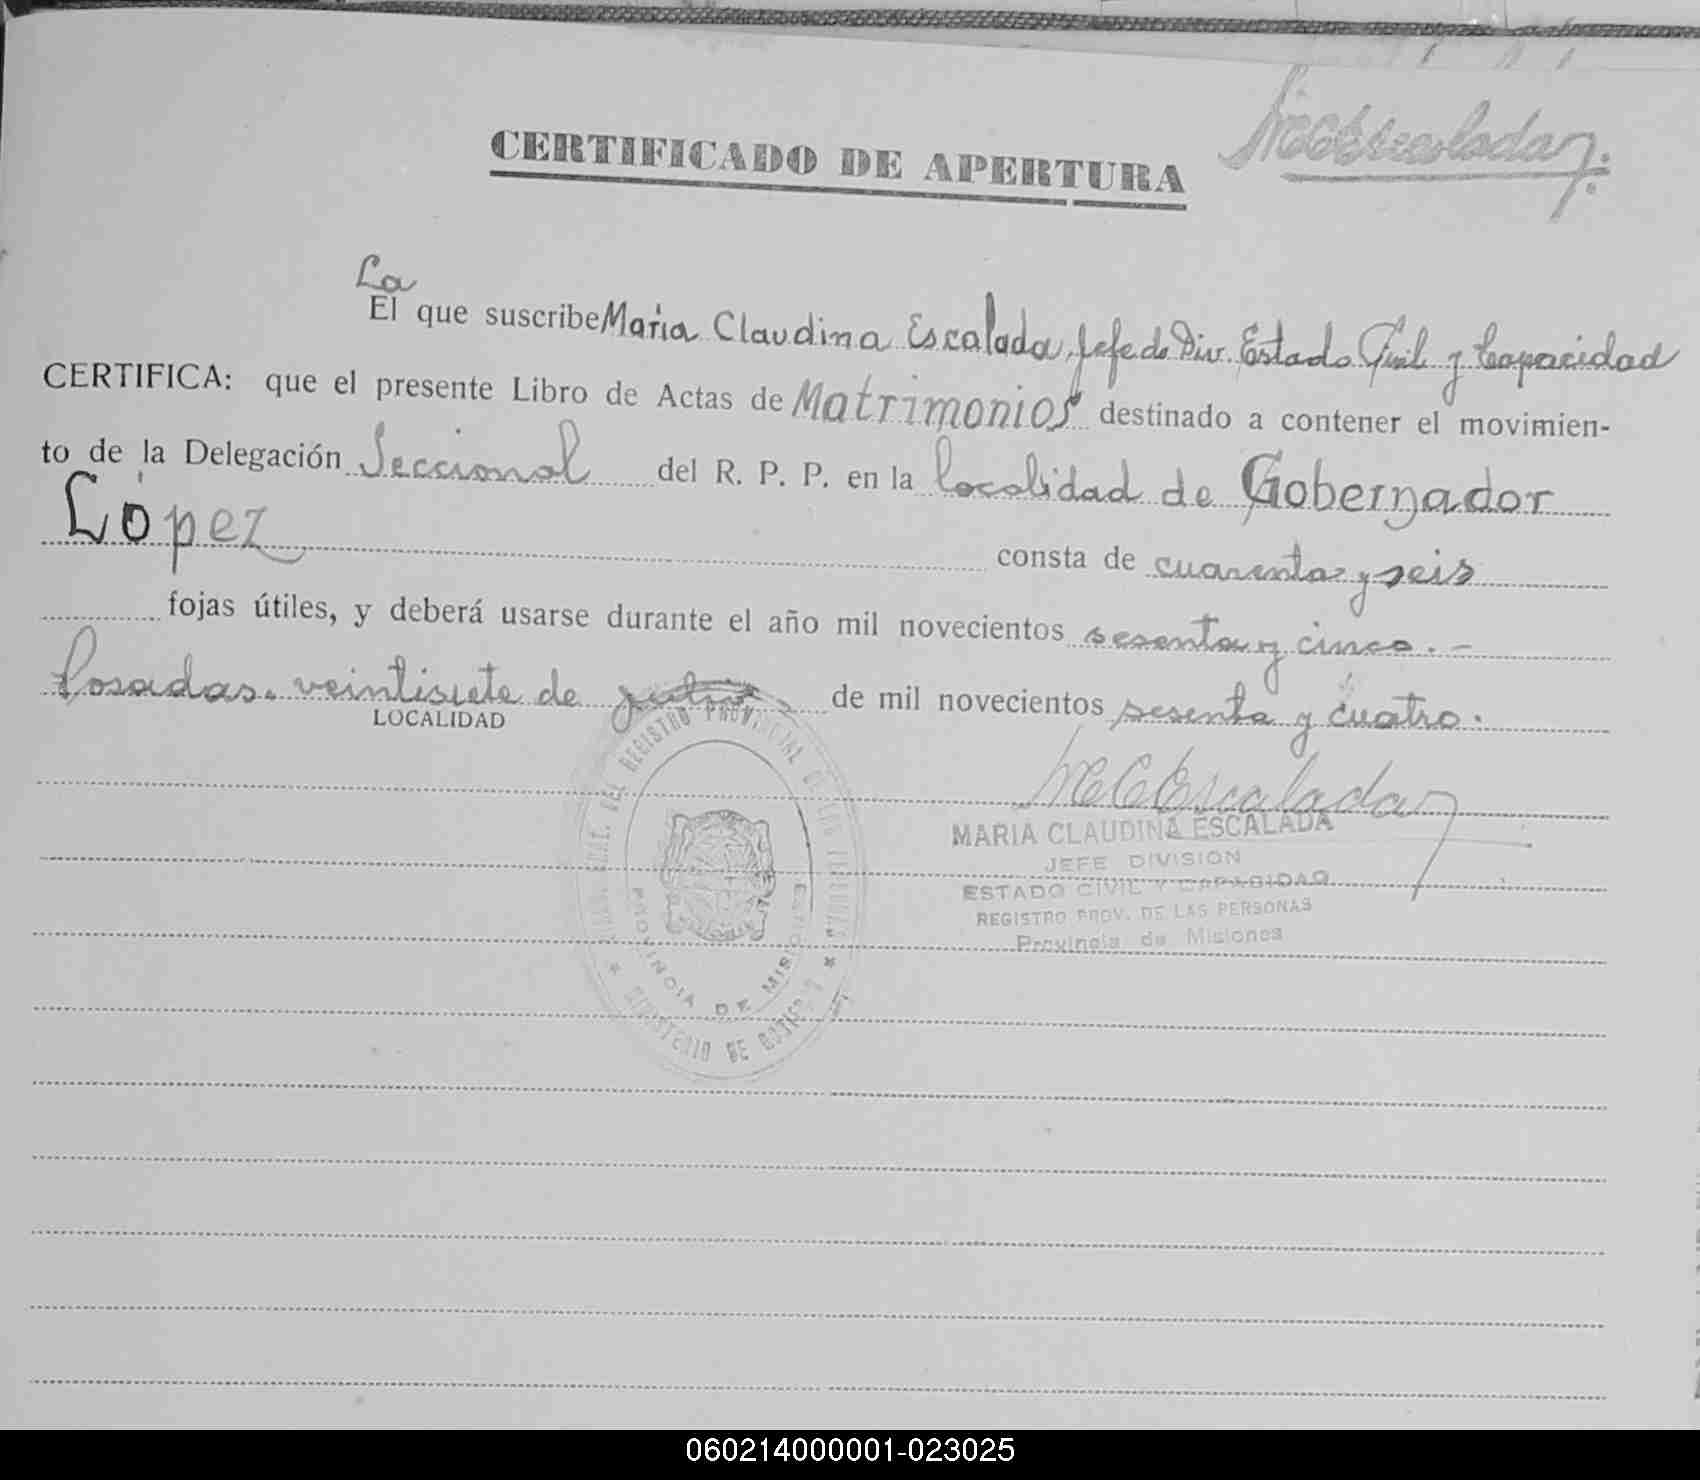 CERTIFICADO DE APERTURA
MCEscalada
La
El que suscribe Maria Claudina Escalada, Jefe de Div. Estado Civil y Capacidad
CERTIFICA: que el presente Libro de Actas de Matrimonios destinado a contener el movimien-
to de la Delegación Seccional del R. P. P. en la localidad de Gobernador
López consta de cuarenta y seis
fojas útiles, y deberá usarse durante el año mil novecientos sesenta y cinco. -
Posadas. veintisiete de de mil novecientos sesenta y cuatro.
LOCALIDAD
MCEscalada
MARIA CLAUDINA ESCALADA
JEFE DIVISION
ESTADO CIVIL Y CAPACIDAD
REGISTRO PROV. DE LAS PERSONAS
Provincia de Misiones
DEL REGISTRO PROVINCIAL DE LAS PERSONAS
MINISTERIO DE GOBIERNO
PROVINCIA DE MISIONES
060214000001-023025